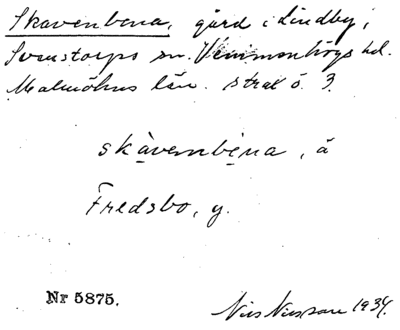 Skavenbena, gård i Lindby i
Svenstorps sn. Vemmenhögs hd.
Malmöhus län. strax ö. 3.
skàvenbe̱na, å
Fredsbo, y.
Nr 5875.
Nils Nilsson 1934.